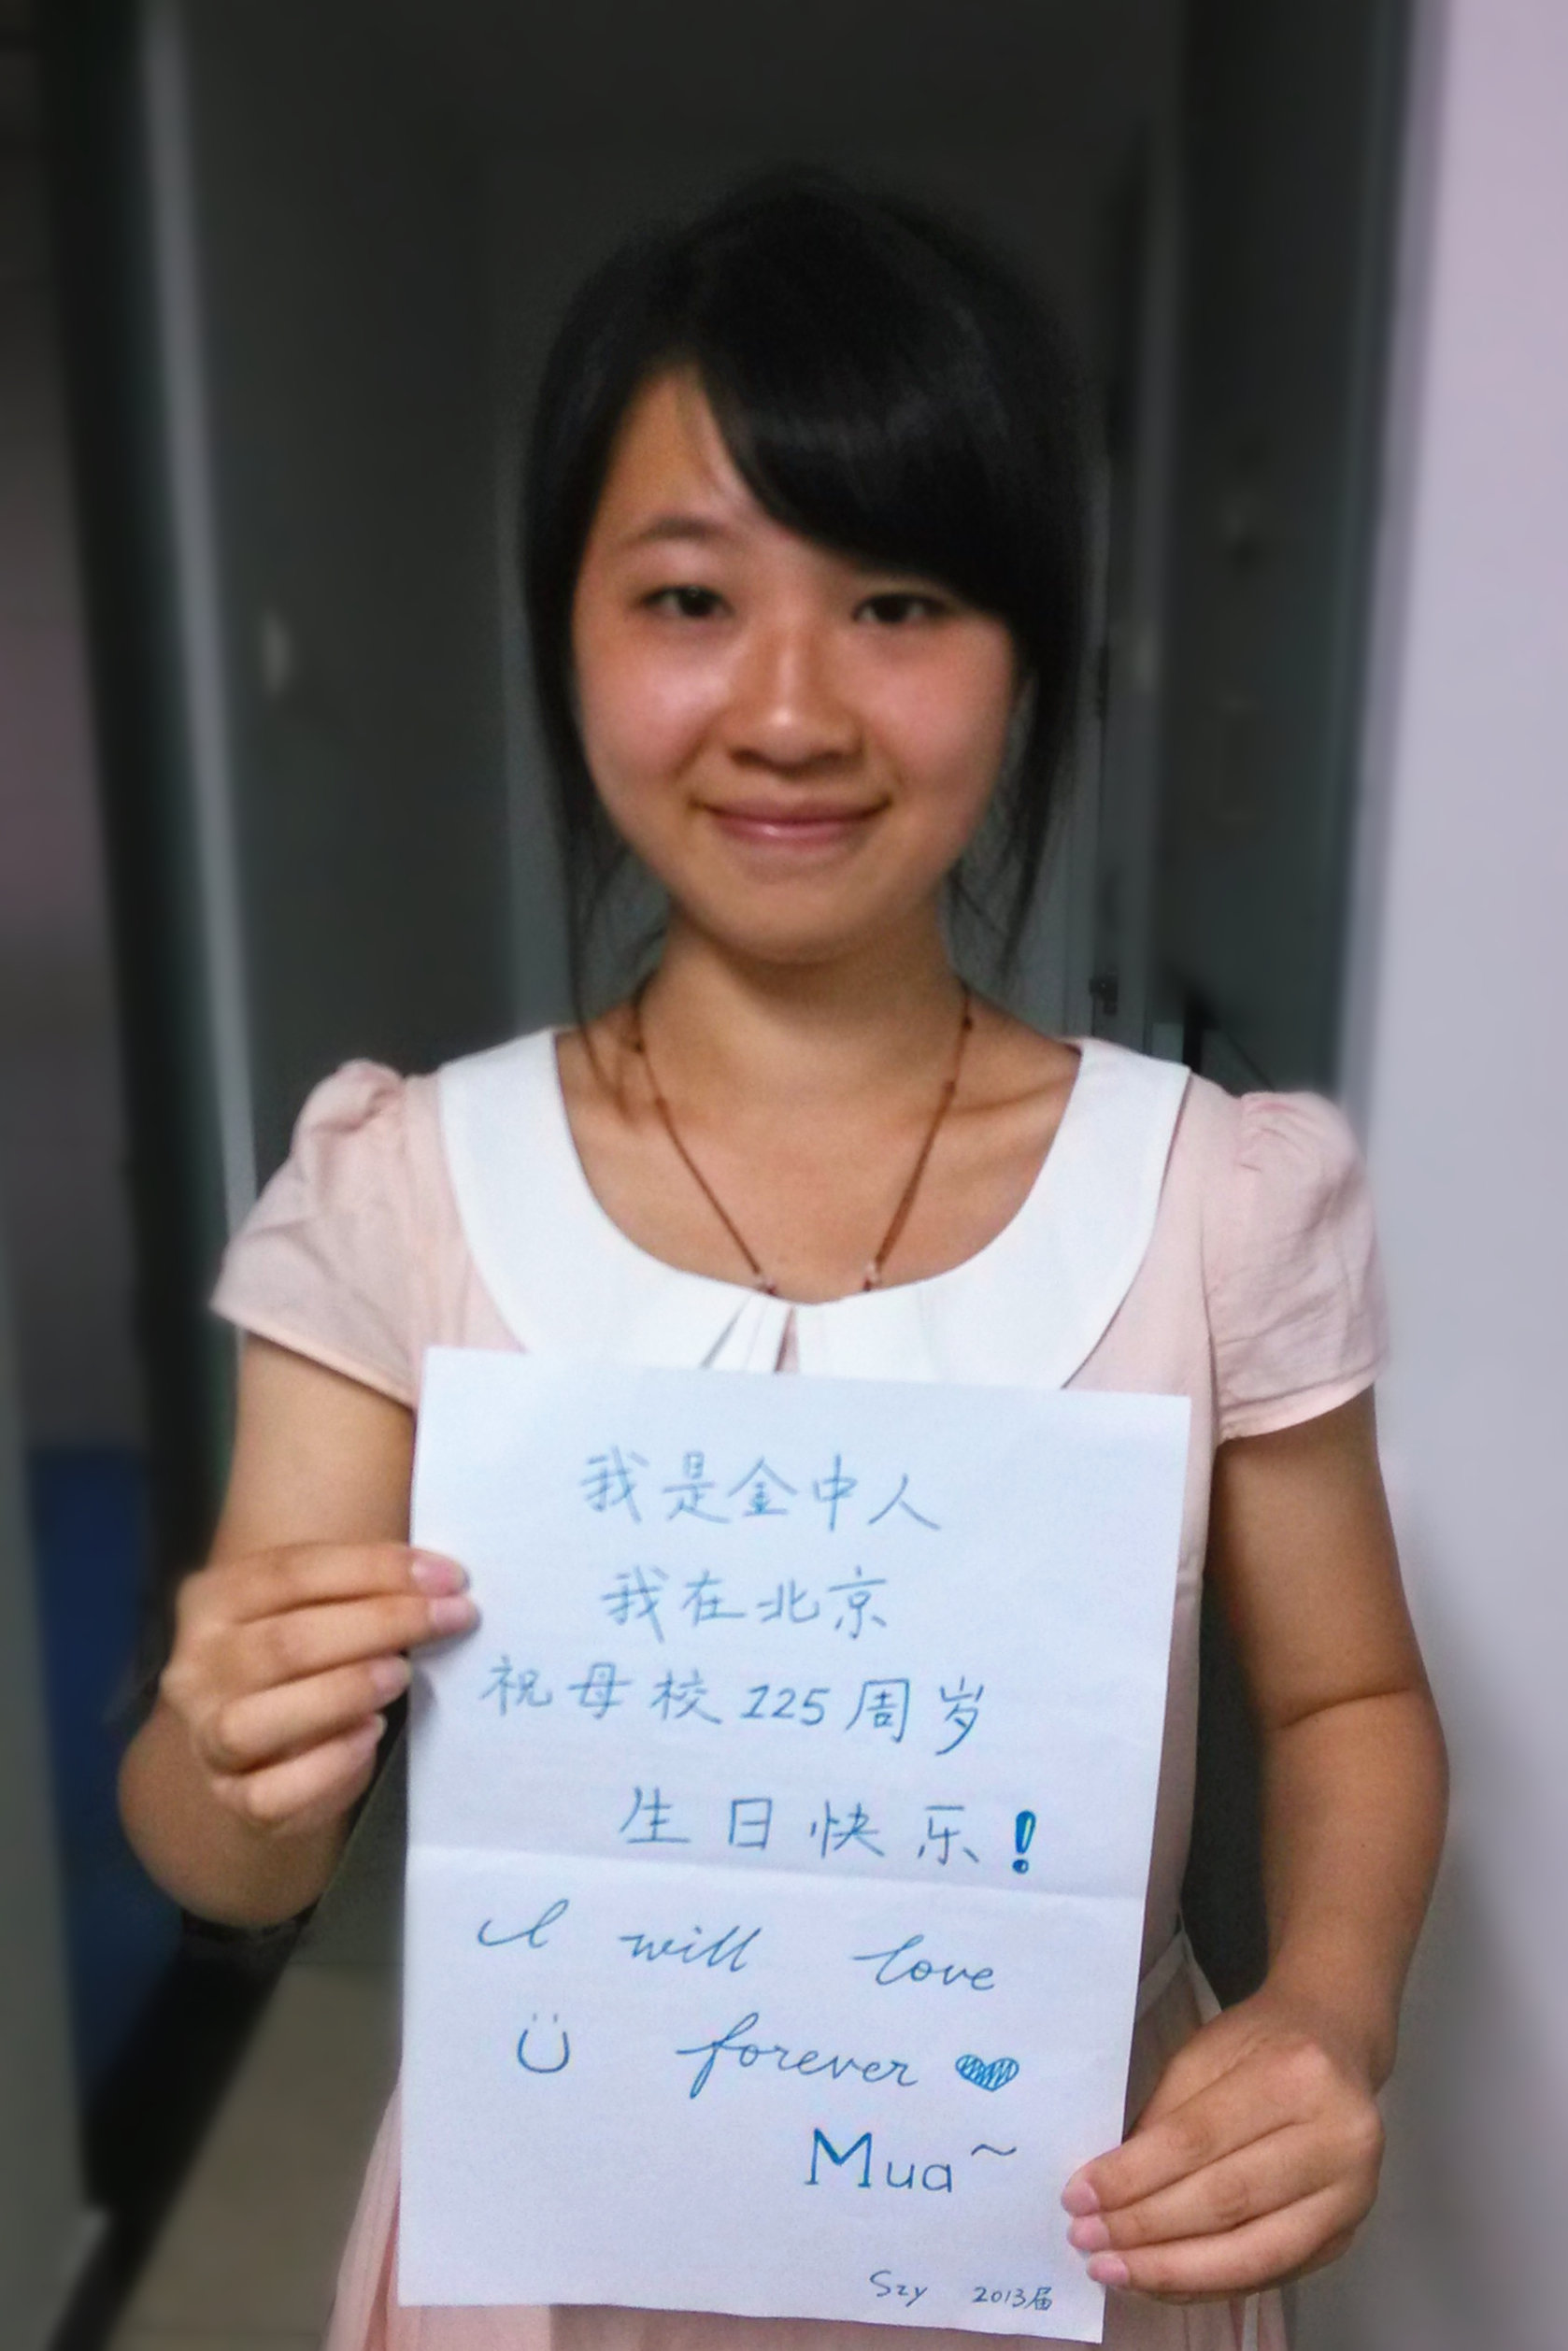 我是金中人
我在北京
祝母校125周岁
生日快乐!
I will love
forever
Mua~
Szy 2013届